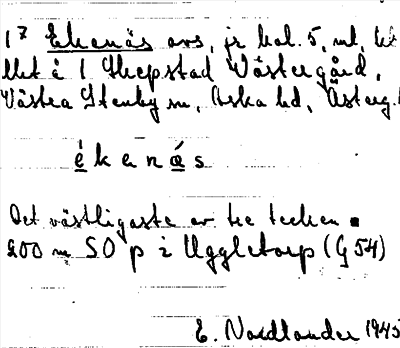 17 Ekenäs avs, jr kal. 5, ml,
llet å 1 Skepstad Västergård,
Västra Stenby sn, Aska hd, Österg.
é k e n ǽ s
Det västligaste av tre tecken
200 m SO p i Uggletorp (G 54)
E. Nordlander 1945